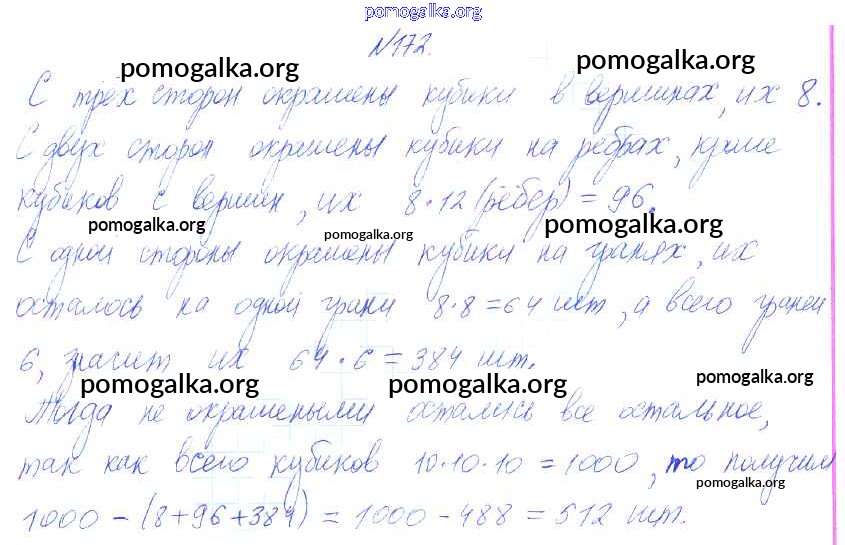 pomogalka.org
№172.
pomogalka.org
pomogalka.org
С трёх сторон окрашены кубики в вершинах, их 8.
С двух сторон окрашены кубики на рёбрах, кроме
кубиков с вершин, их 8·12 (рёбер) = 96.
pomogalka.org
pomogalka.org
pomogalka.org
С одной стороны окрашены кубики на гранях, их
осталось на одной грани 8·8=64 шт, а всего граней
6, значит их 64·6=384 шт.
pomogalka.org
pomogalka.org
pomogalka.org
Тогда не окрашеными остались все остальное,
так как всего кубиков 10·10·10=1000, то получим
pomogalka.org
1000-(8+96+384)=1000-488=512 шт.